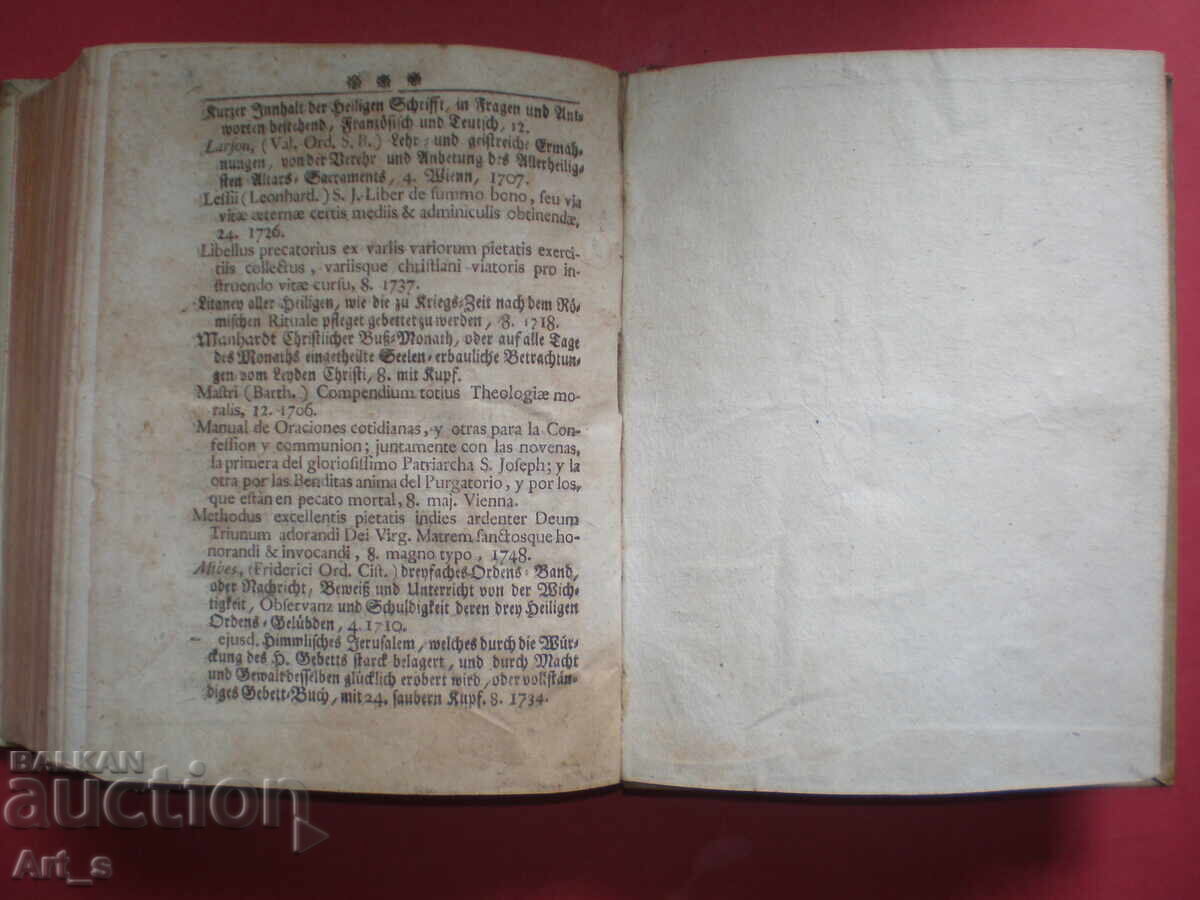 Kurzer Innhalt der Heiligen Schrifft, in Fragen und Ant-
worten bestehend, Französisch und Teutsch, 12.
Larson, (Val. Ord. S. B.) Lehr- und geistreiche Ermah-
nungen, von der Verehr und Anbetung des Allerheilig-
sten Altars-Sacraments, 4. Wienn, 1707.
Leſſii (Leonhard.) S. J. Liber de ſummo bono, ſeu via
vitæ æternæ certis mediis & adminiculis obtinendæ,
24. 1726.
Libellus precatorius ex variis variorum pietatis exerci-
tiis collectus, variisque chriſtiani viatoris pro in-
ſtruendo vitæ curſu, 8. 1737.
Litaney aller Heiligen, wie die zu Kriegs-Zeit nach dem Rö-
mischen Rituale pfleget gebettet zu werden, 8. 1718.
Manhardt Christlicher Buß-Monath, oder auf alle Tage
des Monaths eingetheilte Seelen-erbauliche Betrachtun-
gen vom Leyden Christi, 8. mit Kupf.
Maſtri (Barth.) Compendium totius Theologiæ mo-
ralis, 12. 1706.
Manual de Oraciones cotidianas, y otras para la Con-
feſſion y communion; juntamente con las novenas,
la primera del glorioſiſſimo Patriarcha S. Joſeph; y la
otra por las Benditas anima del Purgatorio, y por los,
que eſtàn en pecato mortal, 8. maj. Vienna.
Methodus excellentis pietatis indies ardenter Deum
Triunum adorandi Dei Virg. Matrem ſanctosque ho-
norandi & invocandi, 8. magno typo, 1748.
Mibes, (Friderici Ord. Ciſt.) dreyfaches Ordens-Band,
oder Nachricht, Beweiß und Unterricht von der Wich-
tigkeit, Obſervanz und Schuldigkeit deren drey Heiligen
Ordens-Gelübden, 4. 1710.
— ejusd. Himmlisches Jerusalem, welches durch die Wür-
ckung des H. Gebetts starck belagert, und durch Macht
und Gewalt desselben glücklich erobert wird, oder vollstän-
diges Gebett-Buch, mit 24. saubern Kupf. 8. 1734.
BALKAN
auction
Art_s